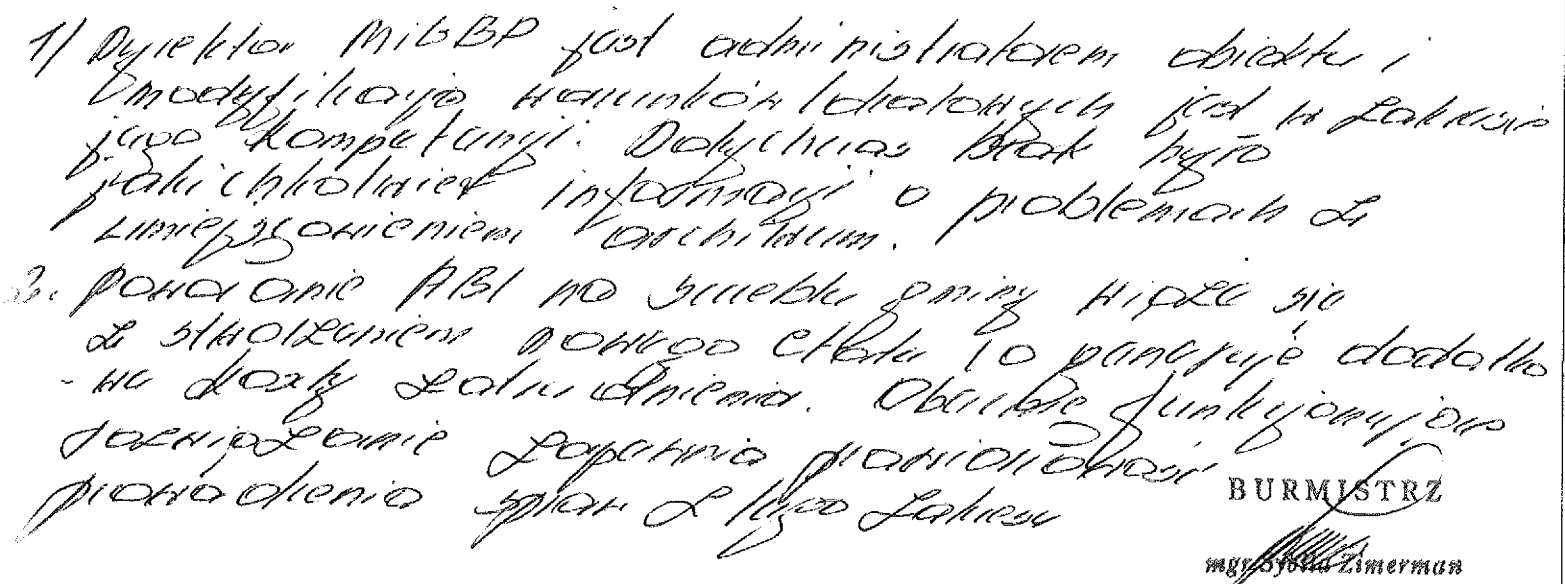 1/ Dyrektor MiGBP jest administratorem obiektu i
modyfikacja warunków lokalowych jest w zakresie
jego kompetencji. Dotychczas brak było
jakichkolwiek informacji o problemach z
umiejscowieniem archiwum.
2. Powołanie ABI na szczeblu gminy wiąże się
z stworzeniem nowego etatu co generuje dodatko
-we koszty zatrudnienia. Obecnie funkcjonujące
rozwiązanie zapewnia prawidłowość
prowadzenia spraw z tego zakresu
BURMISTRZ
mgr Zimerman